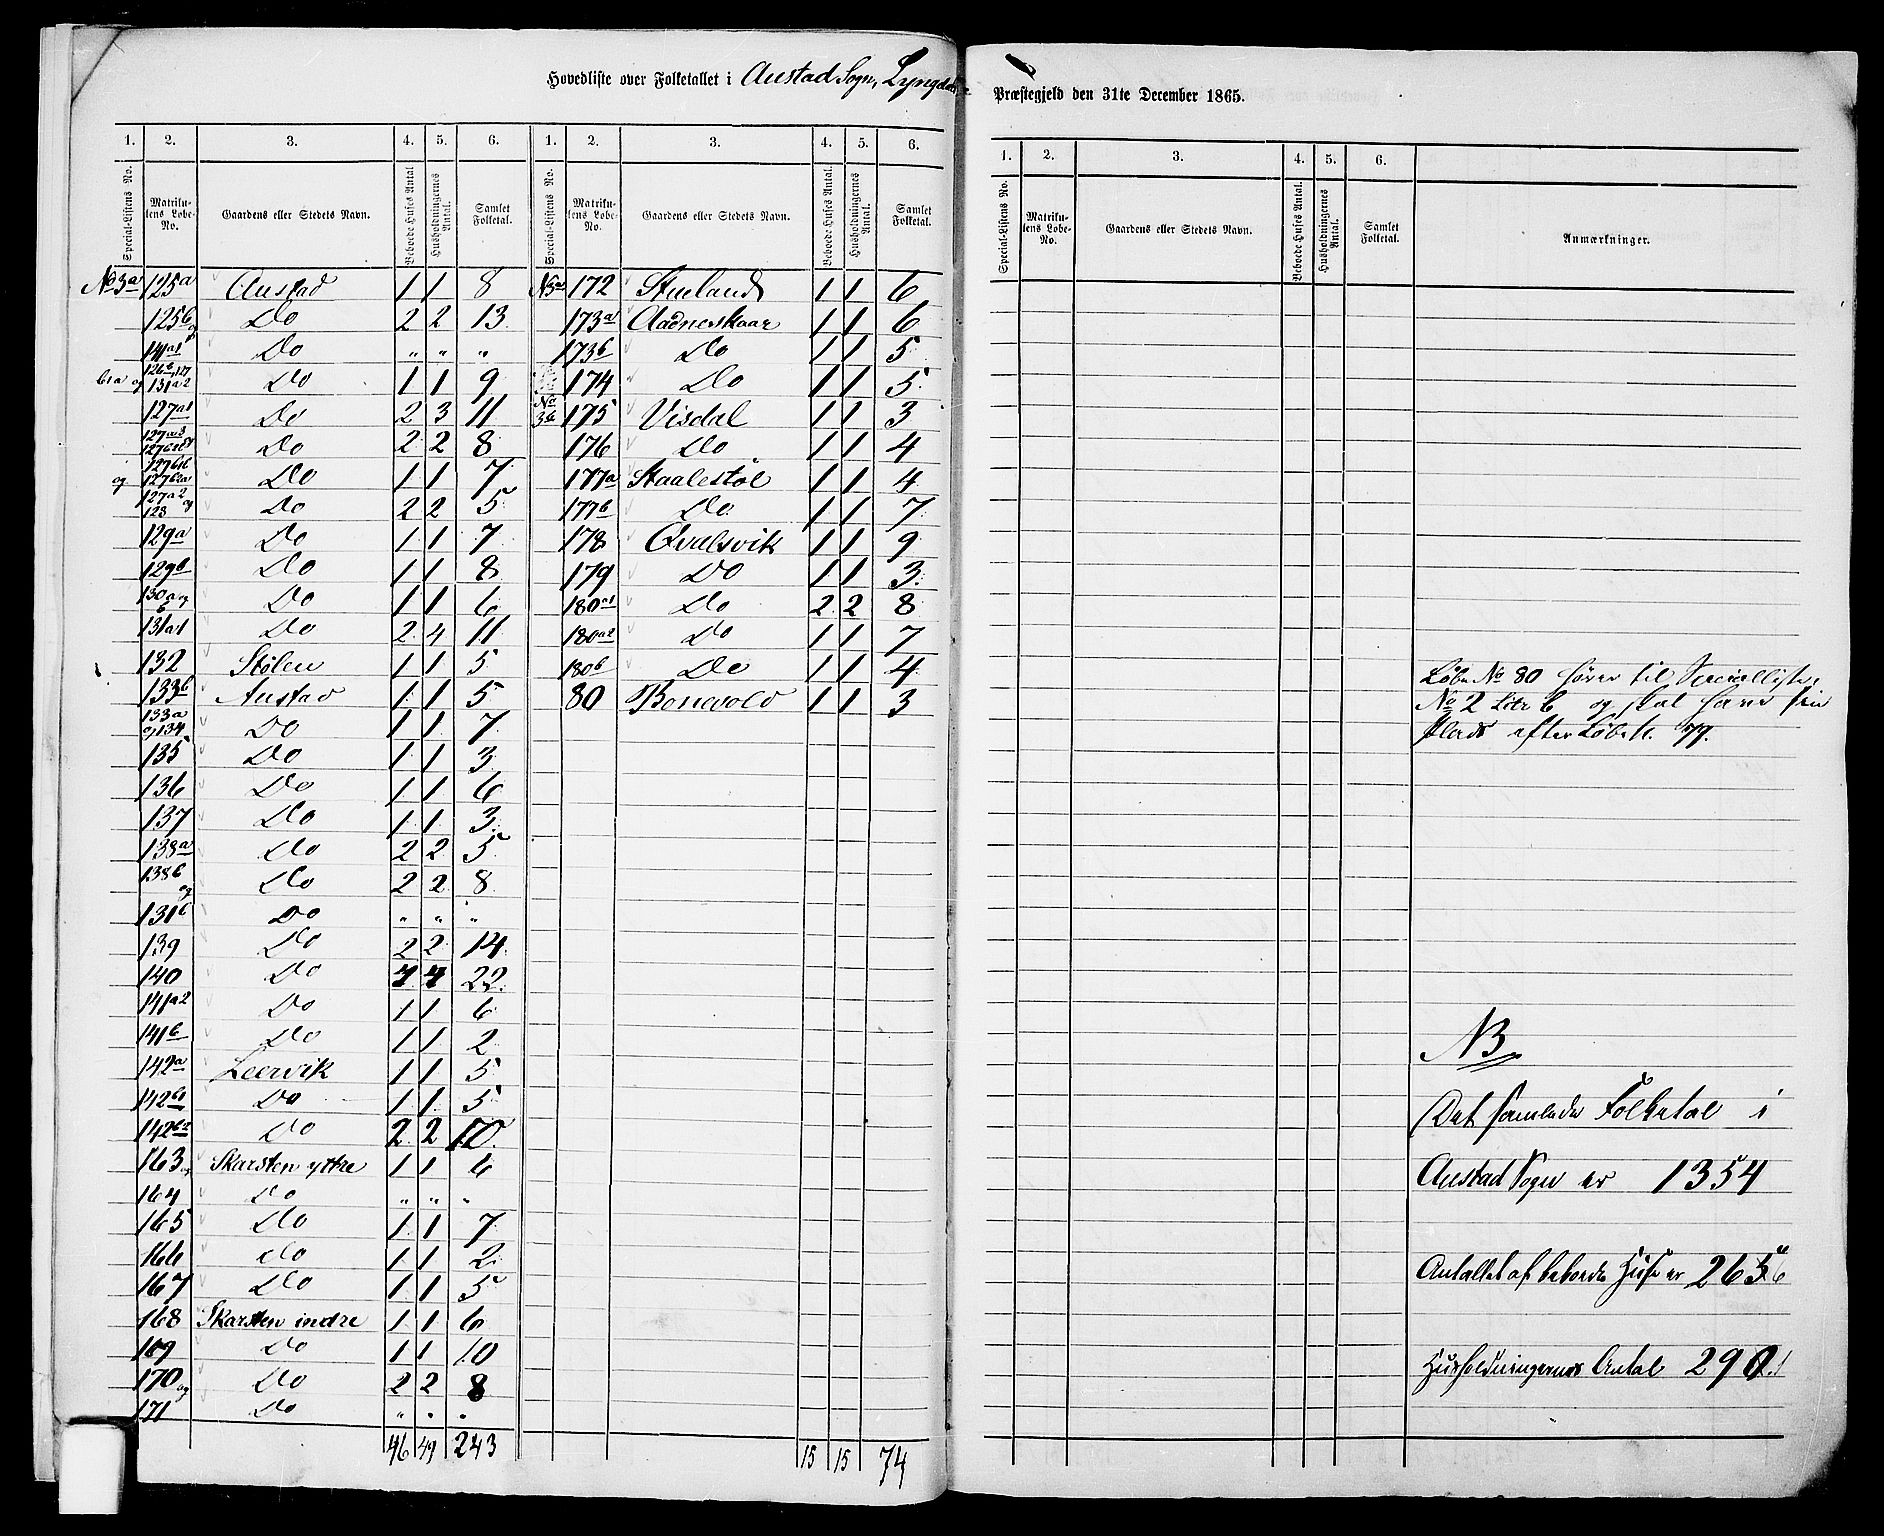 Hovedliste over Folketallet i Austad Sogn, Lyngdals Præstegjeld den 31te December 1865.
1. 2. 3. 4. 5. 6. 1. 2. 3. 4. 5. 6.
Special-Listens No. Matrikulens Løbe-No. Gaardens eller Stedets Navn. Beboede Huses Antal Husholdningernes Antal. Samlet Folketal. Special-Listens No. Matrikulens Løbe-No. Gaardens eller Stedets Navn. Beboede Huses Antal. Husholdningernes Antal. Samlet Folketal.
No 3a 125a Austad 1 1 8
125b og Do 2 2 13
141a1 Do " " "
131a2 Do 1 1 9
127a1 Do 2 3 11
127a3 Do 2 2 8
og 127b2a Do 1 1 7
127a2 og 128 Do 2 2 5
129a Do 1 1 7
129b Do 1 1 8
130a og b Do 1 1 6
131a1 Do 2 4 11
132 Stølen 1 1 5
133b Austad 1 1 5
133a og 134 Do 1 1 7
135 Do 1 1 3
136 Do 1 1 6
137 Do 1 1 3
138a Do 2 2 5
138b og Do 2 2 8
131b Do " " "
139 Do 2 2 14
140 Do 4 4 22
141a2 Do 1 1 6
141b Do 1 1 2
142a Leervik 1 1 5
142b1 Do 1 1 5
142b2 Do 2 2 10
163 og Skarsten ytre 1 1 6
164 Do " " "
165 Do 1 1 7
166 do 1 1 2
167 Do 1 1 5
168 Skarsten indre 1 1 6
169 Do 1 1 10
170 og Do 2 2 8
171 Do " " "
46 49 243
No 3a 172 Stueland 1 1 6
173a Aadneskaar 1 1 6
173b Do 1 1 5
174 Do 1 1 5
No 3b 175 Visdal 1 1 3
176 Do 1 1 4
177a Staalestøl 1 1 4
177b Do 1 1 7
178 Qvalsvik 1 1 9
179 Do 1 1 3
180a1 Do 2 2 8
180a2 Do 1 1 7
180b Do 1 1 4
80 Bonevold 1 1 3
15 15 74
1. 2. 3. 4. 5. 6.
Special-Listens No. Matrikulens Løbe-No. Gaardens eller Stedets Navn. Beboede Huses Antal. Husholdningernes Antal. Samlet Folketal. Anmærkninger.
Løbe No 80 hører til Speciellisten
No 2 Litr b og skal have sin
Plads efter Løbe N. 79.
NB
Det samlede Folketal i
Austad Sogn er 1354
Antallet af beboede Huse er 265 6
Husholdningernes Antal 290.1